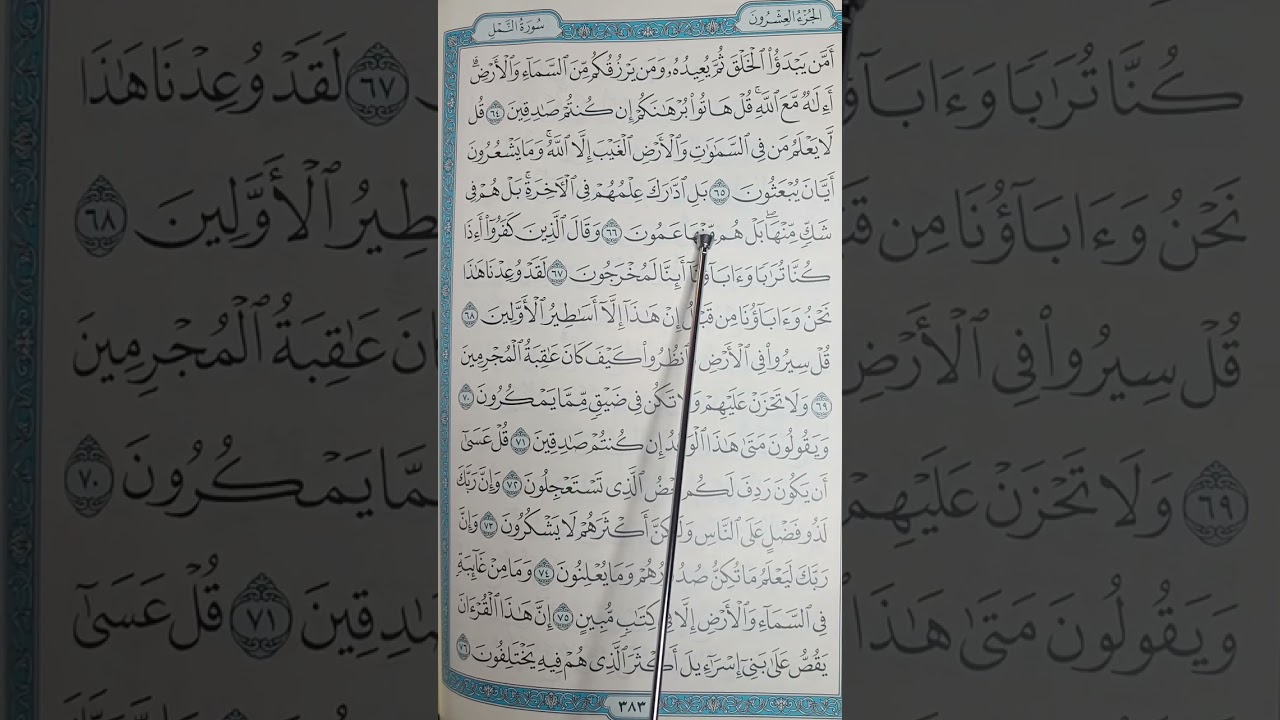 الجُزْءُ العِشْرُونَ
سُورَةُ النَّمْلِ
أَمَّن يَبْدَؤُاْ الْخَلْقَ ثُمَّ يُعِيدُهُۥ وَمَن يَرْزُقُكُم مِّنَ السَّمَآءِ وَالْأَرْضِۗ
أَءِلَٰهٌ مَّعَ اللَّهِۚ قُلْ هَاتُواْ بُرْهَٰنَكُمْ إِن كُنتُمْ صَٰدِقِينَ ٦٤ قُل
لَّا يَعْلَمُ مَن فِي السَّمَٰوَٰتِ وَالْأَرْضِ الْغَيْبَ إِلَّا اللَّهُۚ وَمَا يَشْعُرُونَ
أَيَّانَ يُبْعَثُونَ ٦٥ بَلِ ادَّٰرَكَ عِلْمُهُمْ فِي الْآخِرَةِۚ بَلْ هُمْ فِي
شَكٍّ مِّنْهَاۖ بَلْ هُم مِّنْهَا عَمُونَ ٦٦ وَقَالَ الَّذِينَ كَفَرُوٓاْ أَءِذَا
كُنَّا تُرَٰبًا وَءَابَآؤُنَآ أَئِنَّا لَمُخْرَجُونَ ٦٧ لَقَدْ وُعِدْنَا هَٰذَا
نَحْنُ وَءَابَآؤُنَا مِن قَبْلُ إِنْ هَٰذَآ إِلَّآ أَسَٰطِيرُ الْأَوَّلِينَ ٦٨
قُلْ سِيرُواْ فِي الْأَرْضِ فَانظُرُواْ كَيْفَ كَانَ عَٰقِبَةُ الْمُجْرِمِينَ
٦٩ وَلَا تَحْزَنْ عَلَيْهِمْ وَلَا تَكُن فِي ضَيْقٍ مِّمَّا يَمْكُرُونَ ٧٠
وَيَقُولُونَ مَتَىٰ هَٰذَا الْوَعْدُ إِن كُنتُمْ صَٰدِقِينَ ٧١ قُلْ عَسَىٰٓ
أَن يَكُونَ رَدِفَ لَكُم بَعْضُ الَّذِي تَسْتَعْجِلُونَ ٧٢ وَإِنَّ رَبَّكَ
لَذُو فَضْلٍ عَلَى النَّاسِ وَلَٰكِنَّ أَكْثَرَهُمْ لَا يَشْكُرُونَ ٧٣ وَإِنَّ
رَبَّكَ لَيَعْلَمُ مَا تُكِنُّ صُدُورُهُمْ وَمَا يُعْلِنُونَ ٧٤ وَمَا مِنْ غَآئِبَةٍ
فِي السَّمَآءِ وَالْأَرْضِ إِلَّا فِي كِتَٰبٍ مُّبِينٍ ٧٥ إِنَّ هَٰذَا الْقُرْءَانَ
يَقُصُّ عَلَىٰ بَنِيٓ إِسْرَٰٓءِيلَ أَكْثَرَ الَّذِي هُمْ فِيهِ يَخْتَلِفُونَ ٧٦
٣٨٣